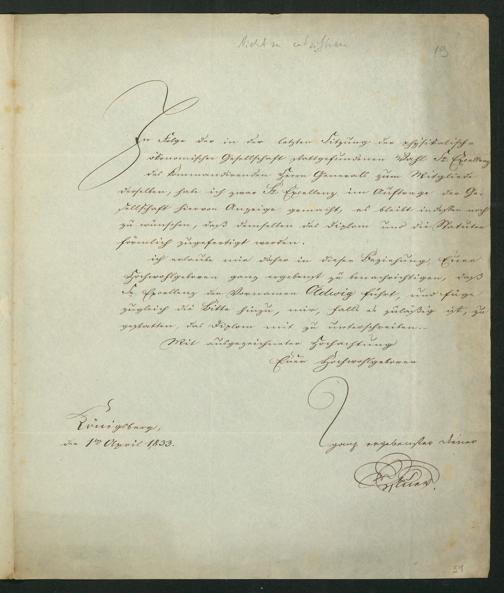 19
In Folge der in der letzten Sitzung der physikalisch-
ökonomischen Gesellschaft stattgefundenen Wahl Sr Excellenz
des kommandirenden Herrn Generals zum Mitgliede
derselben, habe ich zwar Sr Excellenz im Auftrage der Ge-
sellschaft hievon Anzeige gemacht, es bleibt indessen noch
zu wünschen, daß demselben das Diplom und die Statuten
förmlich zugefertigt werden.
Ich erlaube mir daher in dieser Beziehung, Euer
Hochwohlgeboren ganz ergebenst zu benachrichtigen, daß
Se Excellenz den Vornamen Oldwig führt, und füge
zugleich die Bitte hinzu, mir, falls es zuläßig ist, zu
gestatten, das Diplom mit zu unterschreiben.
Mit ausgezeichneter Hochachtung
Euer Hochwohlgeboren
Königsberg,
den 1ten April 1833.
ganz ergebenster Diener